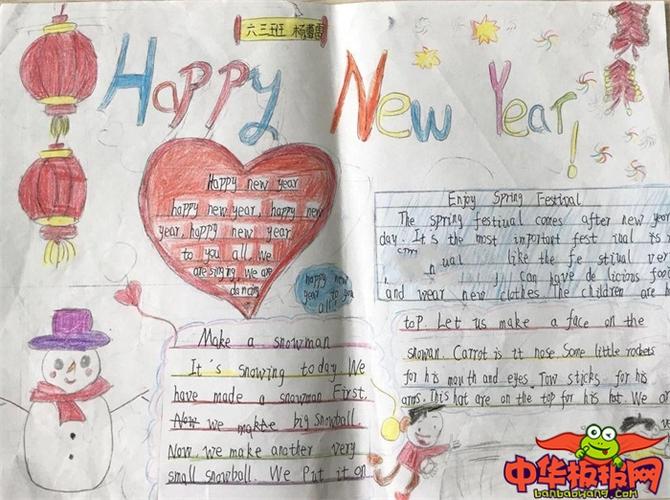 六三班 杨
Happy New Year!
Happy new year
happy new year, happy new
year, happy new year
to you all. We
are singing, we are
dancing
happy new
year to you
all!
Enjoy Spring Festival
The spring festival comes after new year
day. It's the most important fest ival
like the fe stival
can have de licious
and wear new clothes. The children are
Make a snowman
It's snowing today. We
have made a snowman First.
Now we make big snowball.
Now, we make another very
small snowball. We Put it on
top Let us make a face on the
snowan. Carrot is it nose Some little rockets
for his mouth and eyes. Tow sticks for his
arms. This hat are on the top for his hat. We
中华板报网
banbaowang.com